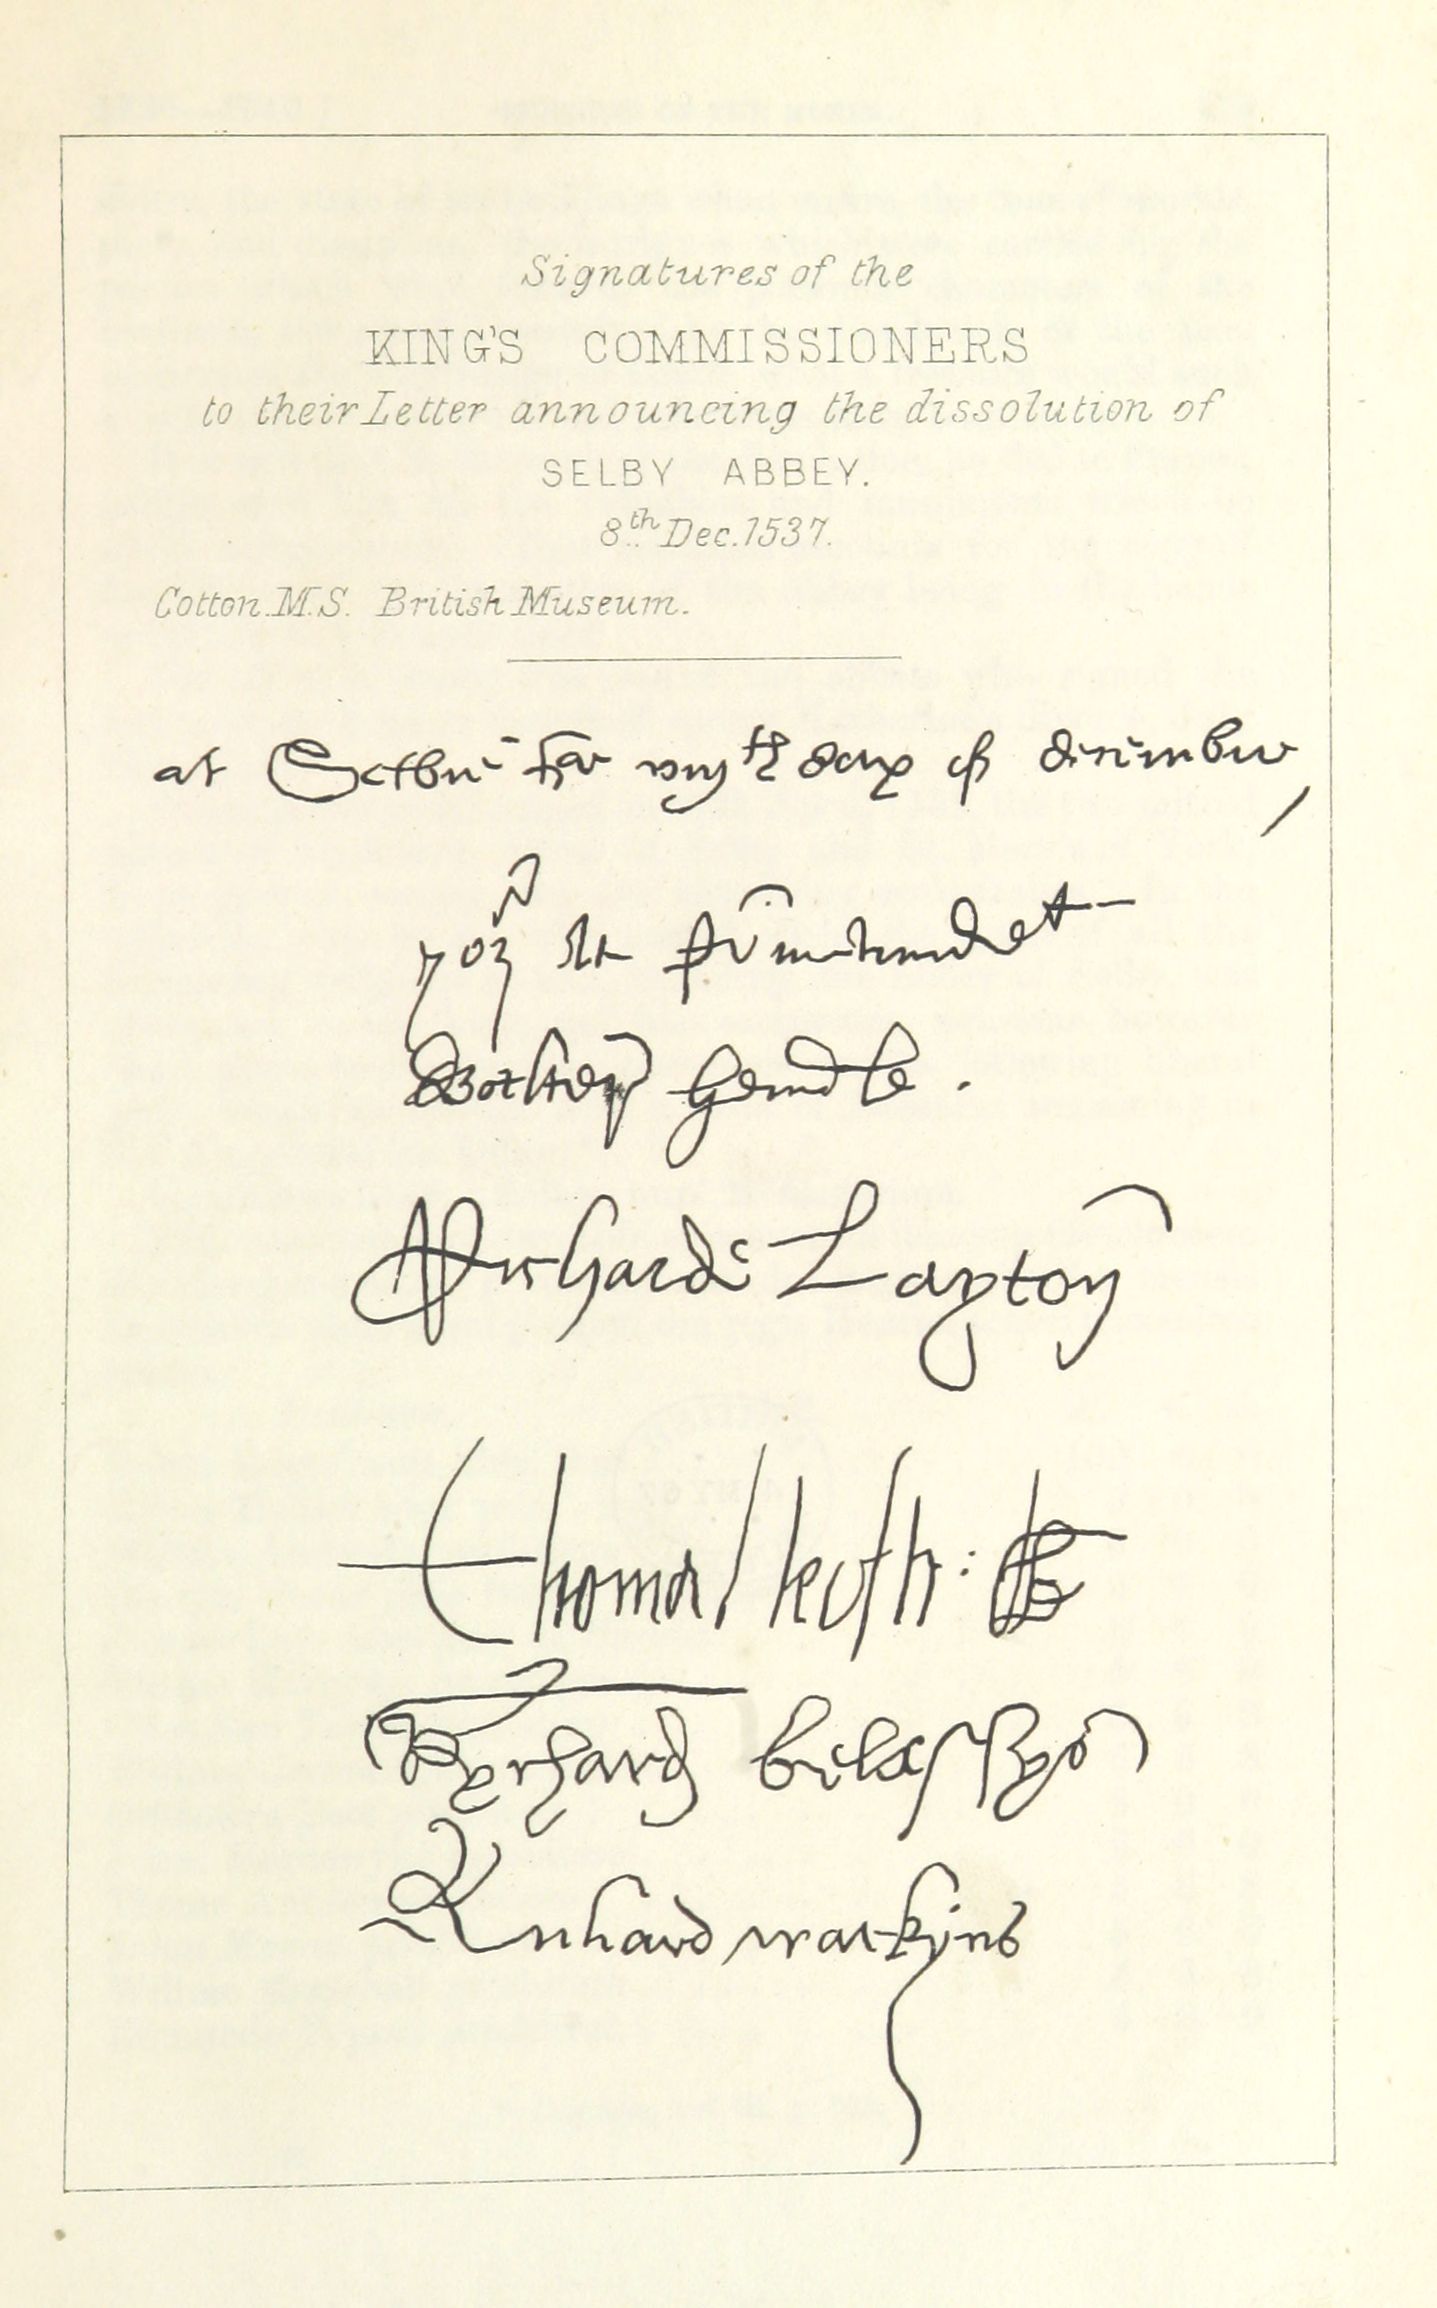 Signatures of the
KING'S COMMISSIONERS
to their Letter announcing the dissolution of
SELBY ABBEY.
8th Dec. 1537.
Cotton M.S. British Museum.
at Selbie the viijth day of decembre
yor
Walter hendle.
Richarde Layton
Thomas legh : 
Rychard belassys
Richard watkins